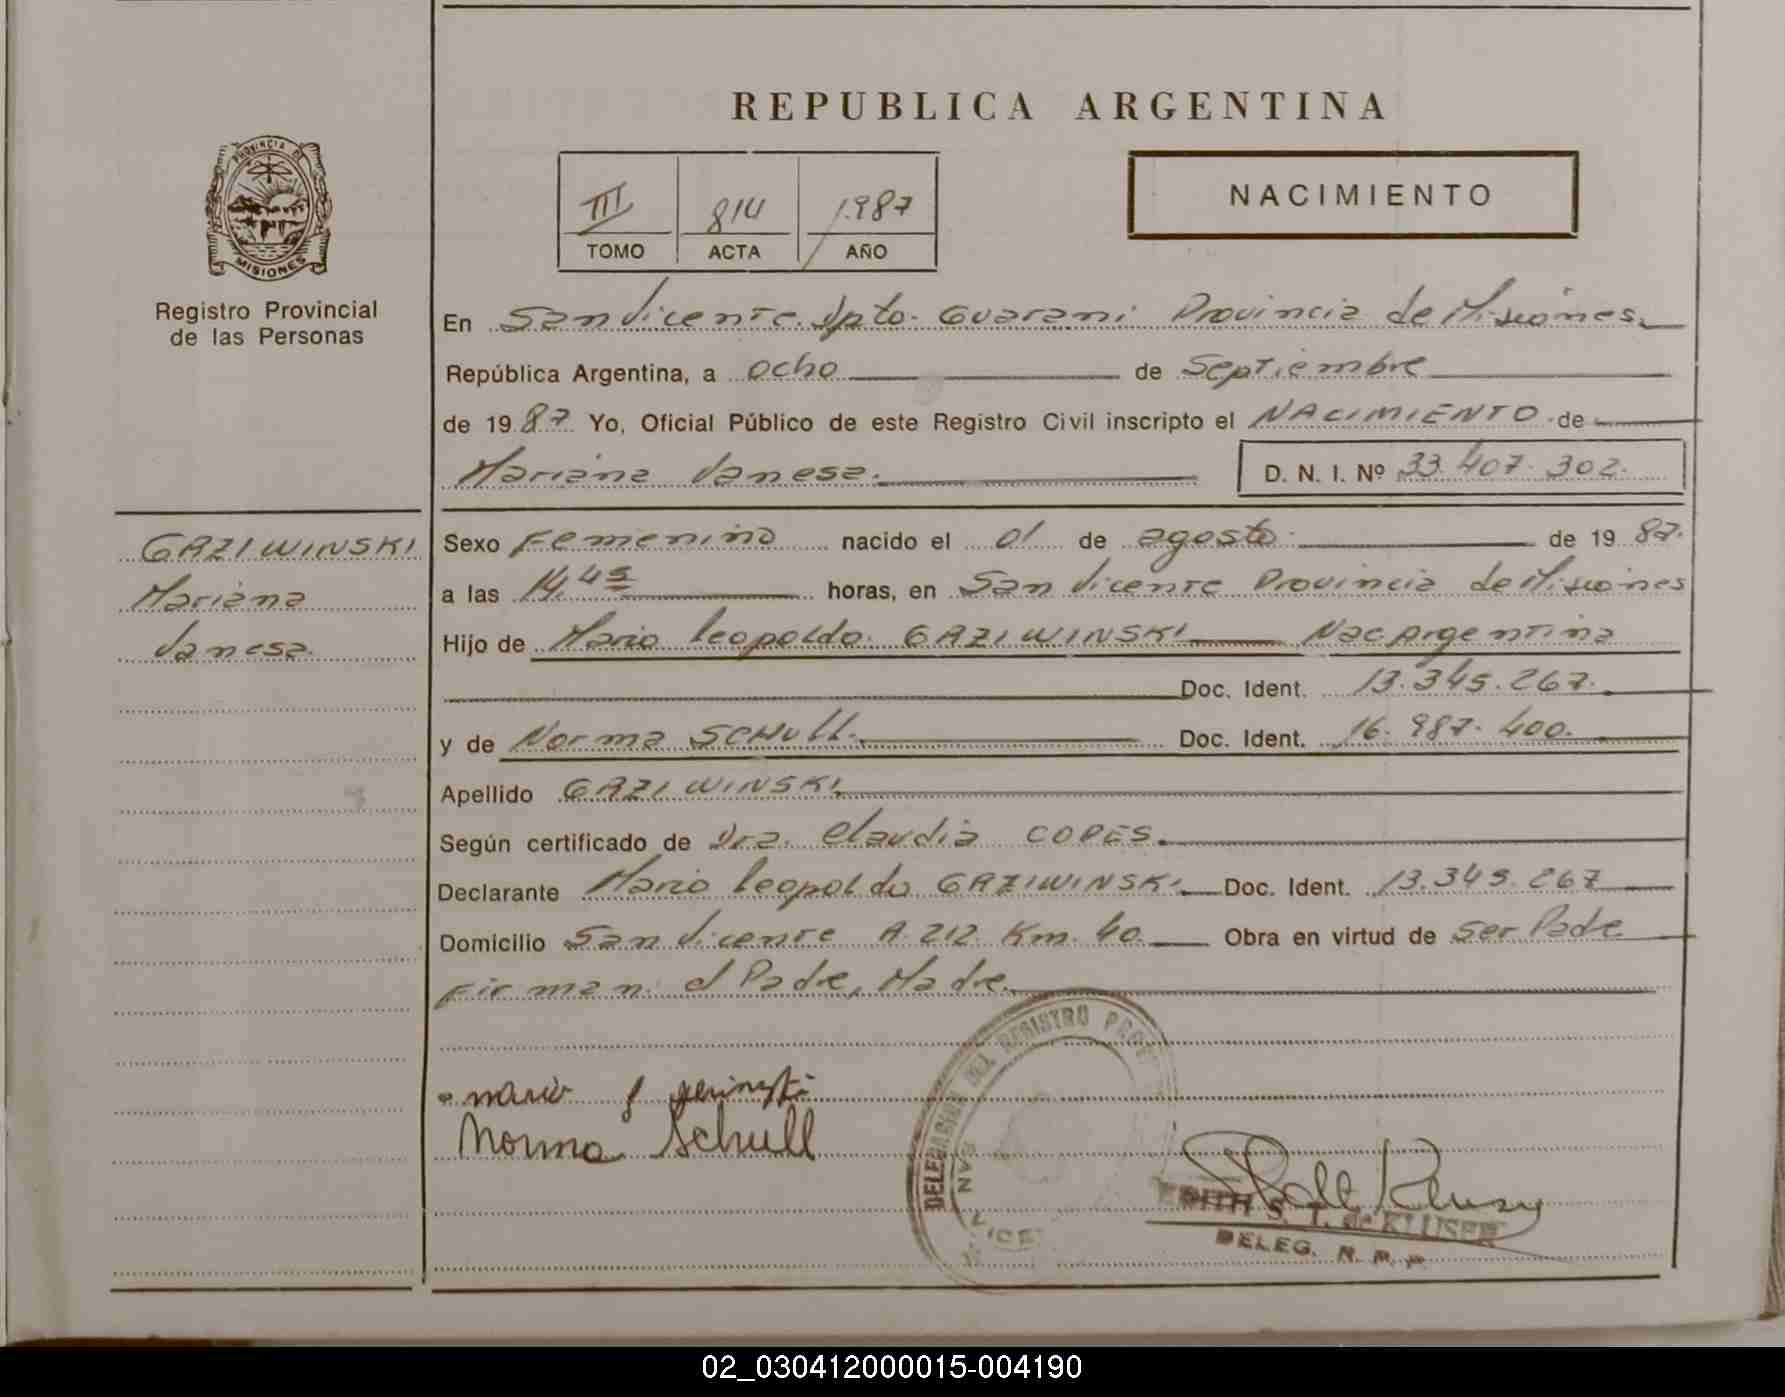 REPUBLICA ARGENTINA
PROVINCIA DE
MISIONES
Registro Provincial
de las Personas
III 814 1987
TOMO ACTA AÑO
NACIMIENTO
En San Vicente. Dpto. Guarani Provincia de Misiones.
República Argentina, a ocho de Septiembre
de 1987 Yo, Oficial Público de este Registro Civil inscripto el NACIMIENTO de
Mariana Vanesa. D. N. I. Nº 33.407.302.
GAZIWINSKI
Mariana
Vanesa.
Sexo Femenino nacido el 01 de agosto de 1987.
a las 14,45 horas, en San Vicente Provincia de Misiones
Hijo de Mario Leopoldo GAZIWINSKI Nac Argentina
Doc. Ident. 13.345.267.
y de Norma SCHULL. Doc. Ident. 16.987.400.
Apellido GAZIWINSKI
Según certificado de Dra. Claudia COPES.
Declarante Mario Leopoldo GAZIWINSKI Doc. Ident. 13.345.267
Domicilio San Vicente A. 212 Km. 40. Obra en virtud de ser Padre
Firman el Padre, Madre.
Mario
Norma Schull
DELEGACION DEL REGISTRO PROV
SAN VICE
EDITH S. T. de KLUSER
DELEG. R. P. P.
02_030412000015-004190